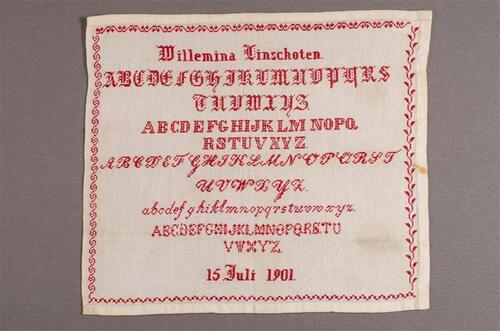 Willemina Linschoten.
ABCDEFGHIJKLMNOPQRS
TUVWXYZ
ABCDEFGHIJKLMNOPQ
RSTUVXYZ.
ABCDEFGHIKLMNOPQRST
UVWXYZ.
abcdefghiklmnopqrstuvwxyz.
ABCDEFGHIJKLMNOPQRSTU
VWXYZ.
15 Juli 1901.